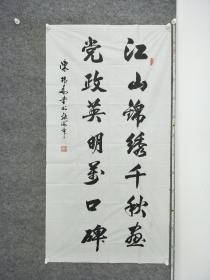 江山锦绣千秋画
党政英明万口碑